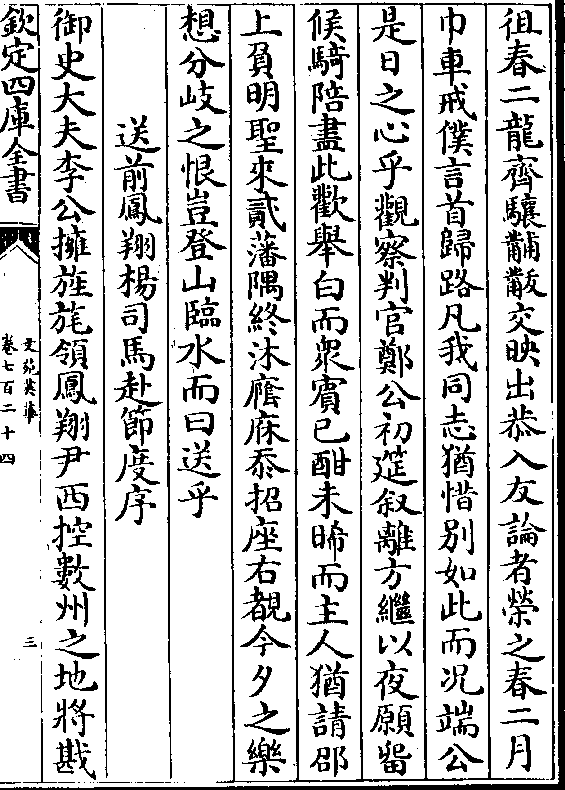 徂春二龍齊驤黼黻交映出恭入友論者榮之春二月
巾車戒僕言首歸路凡我同志猶惜别如此而况端公
是日之心乎觀察判官鄭公初筵叙離方繼以夜願畱
候騎陪盡此歡舉白而衆賓已酣未晞而主人猶請邵
上負明聖來貳藩隅終沐廕庥忝招座右覩今夕之樂
想分岐之恨豈登山臨水而曰送乎
送前鳳翔楊司馬赴節度序
御史大夫李公擁旌旄領鳳翔尹西控數州之地將戡
欽定四庫全書
文苑英華
卷七百二十四
三